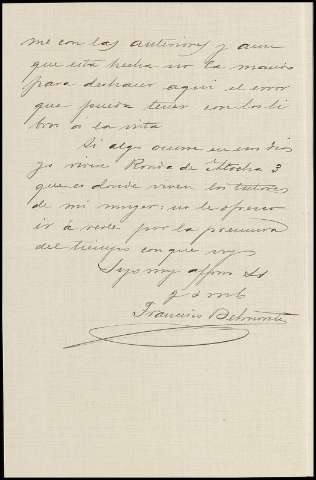 me con las anteriores y aun
que esta hecha no la mando
para deshacer aqui el error
que pueda tener con los li
bros a la vista
Si algo ocurre en esos dias
yo vivo Ronda de Atocha 3
que es donde viven los tutores
de mi muger: no le ofrezco
ir á verle por la premura
del tiempo con que voy
Suyo muy affmo SS
q b s m
Francisco Belmonte